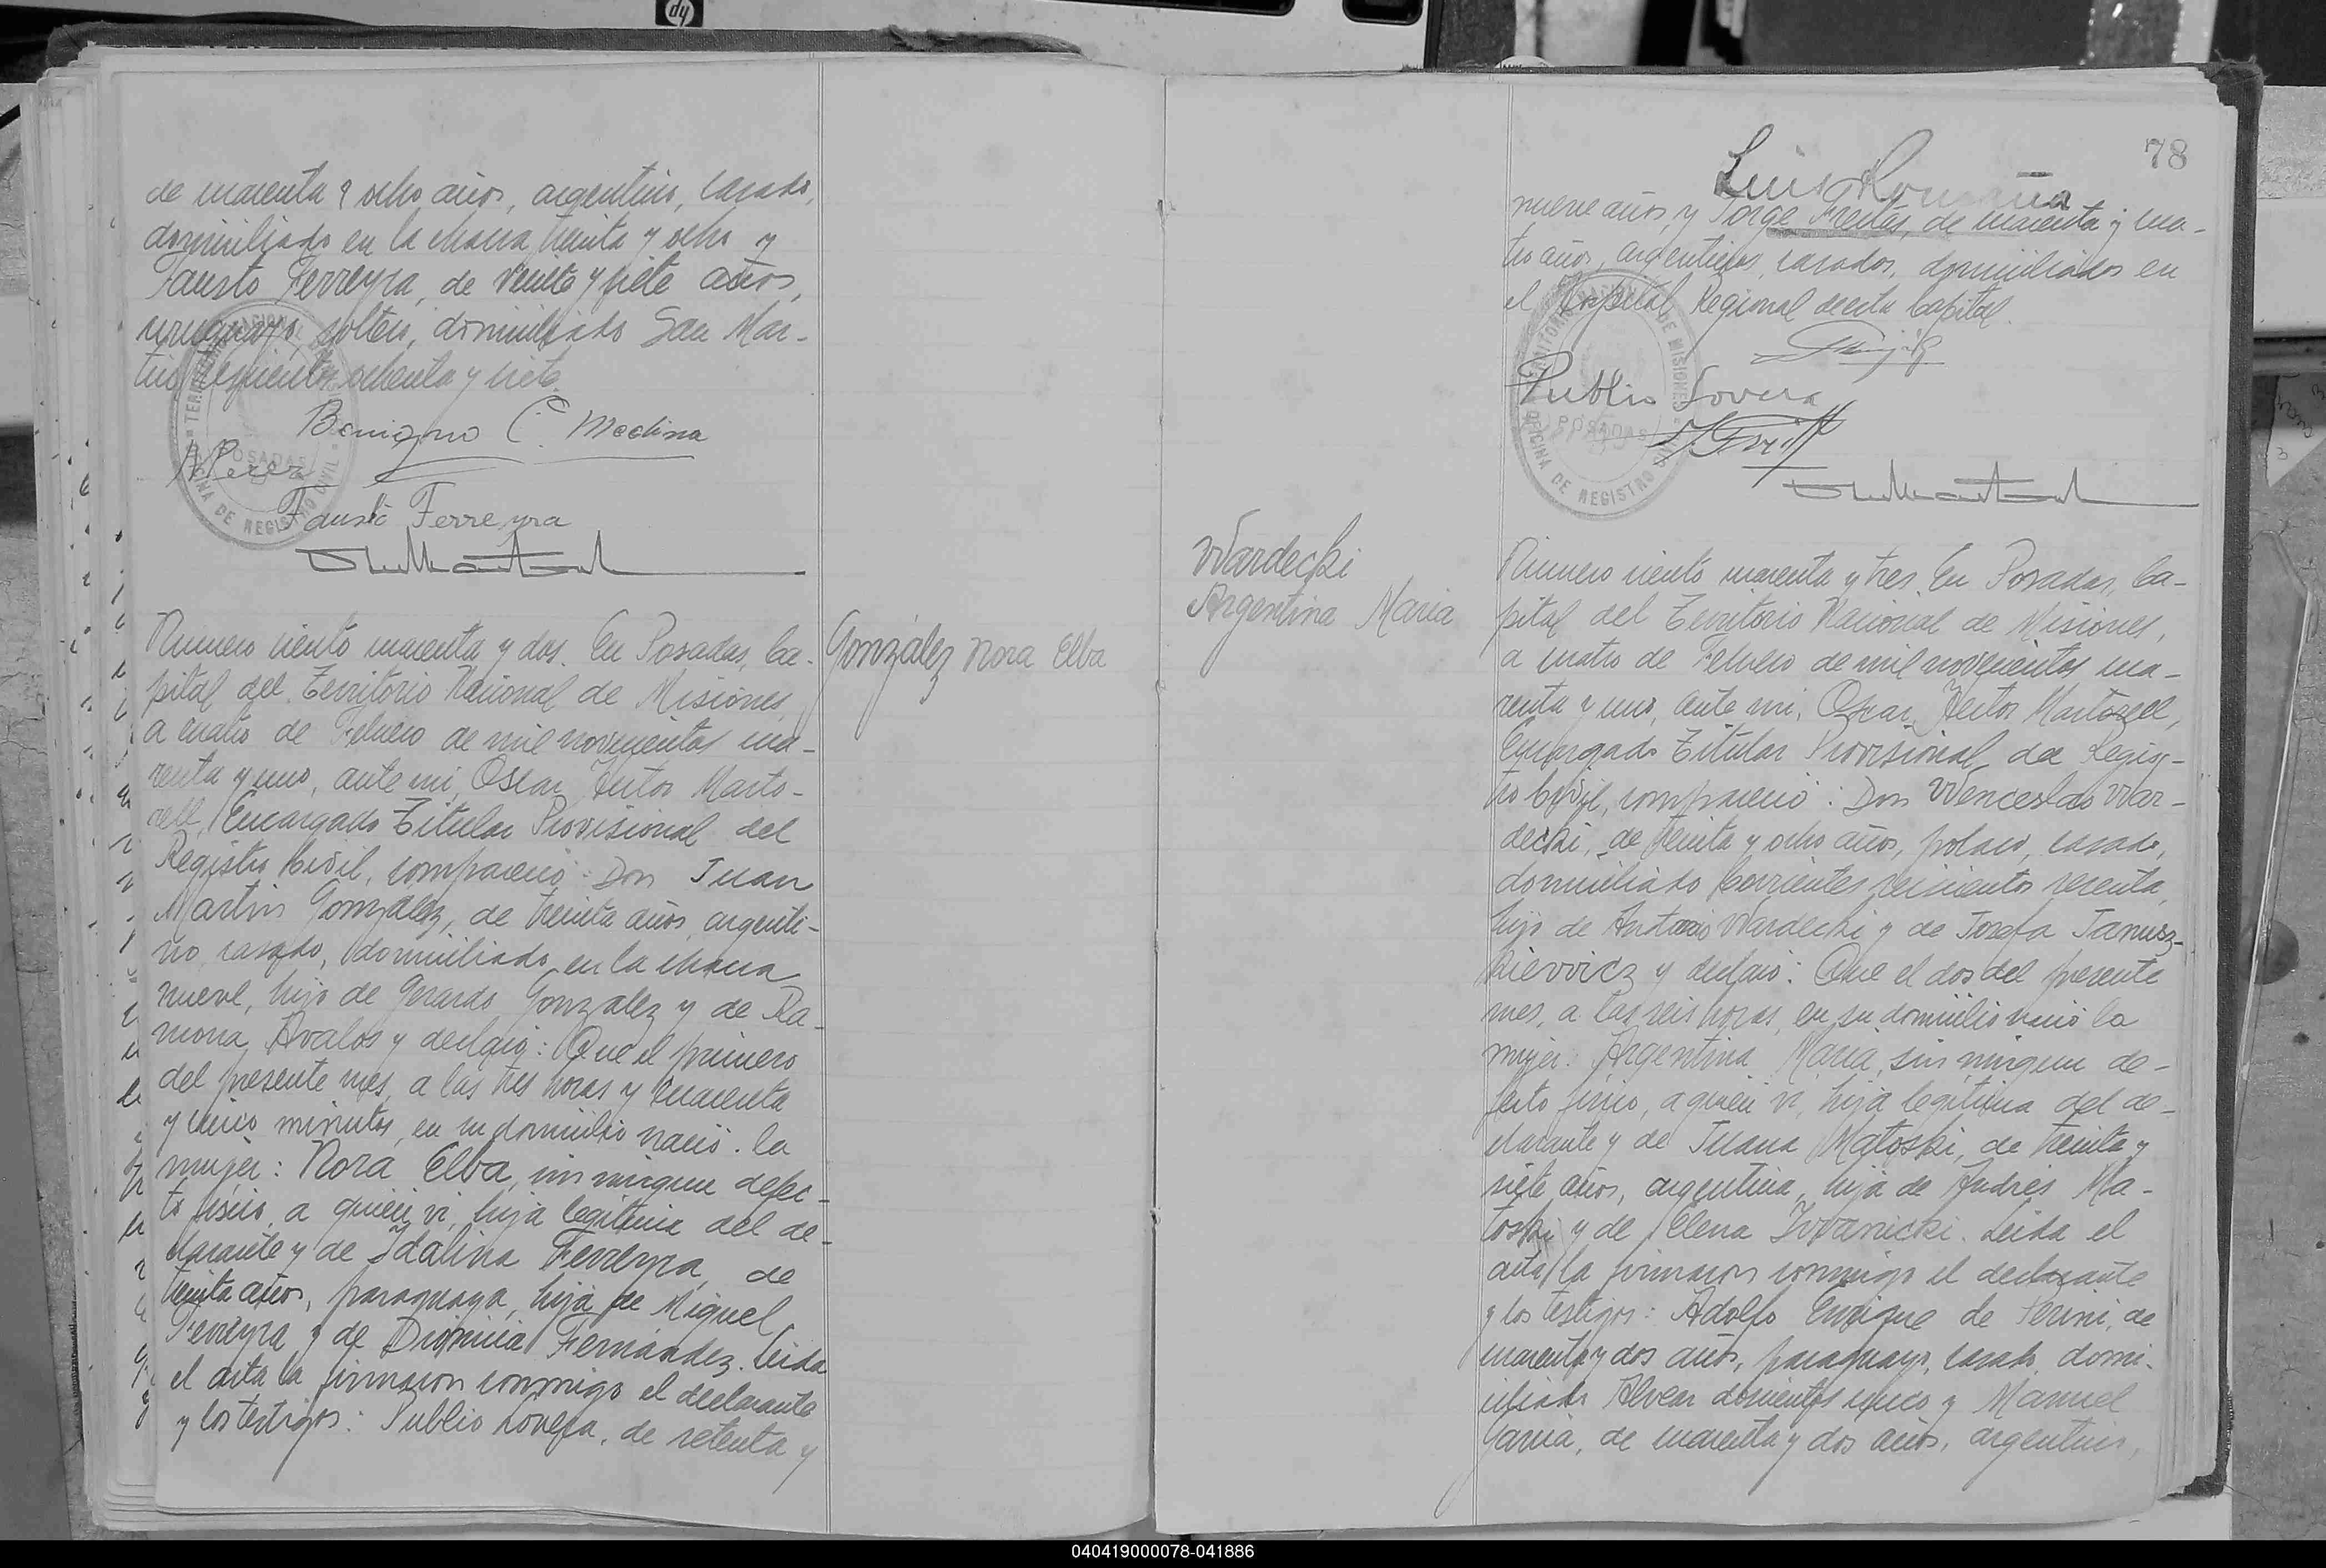 de cuarenta y ocho años, argentino, casado,
domiciliado en la chacra treinta y ocho y
Fausto Ferreyra, de veinte y siete años,
uruguayo, soltero, domiciliado San Mar-
tin ochenta y siete.
TERRITORIO NACIONAL DE MISIONES
POSADAS
OFICINA DE REGISTRO CIVIL
Benigno C. Medina
A Perez
Fausto Ferreyra
Número ciento cuarenta y dos. En Posadas, Ca-
pital del Territorio Nacional de Misiones,
a cuatro de Febrero de mil novecientos cua-
renta y uno, ante mi, Oscar Hector Marto-
rell, Encargado Titular Provisional del
Registro Civil, compareció: Don Juan
Martin Gonzalez, de treinta años, argenti-
no, casado, domiciliado en la chacra
nueve, hijo de Gerardo Gonzalez y de Ra-
mona Avalos y declaró: Que el primero
del presente mes, a las tres horas y cuarenta
y cinco minutos, en su domicilio nació la
mujer: Nora Elba, sin ningun defec-
to físico, a quien vi, hija legitima del de-
clarante y de Idalina Ferreyra, de
treinta años, paraguaya, hija de Miguel
Ferreyra y de Dionicia Fernández. Leida
el acta la firmaron conmigo el declarante
y los testigos: Publio Lovera, de setenta y
González Nora Elba
78
Luis Romaña
nueve años, y Jorge Freitas, de cuarenta y cua-
tro años, argentinos, casados, domiciliados en
el Hospital Regional de esta Capital.
TERRITORIO NACIONAL DE MISIONES
POSADAS
OFICINA DE REGISTRO CIVIL
Publio Lovera
Wardecki
Argentina Maria
Número ciento cuarenta y tres. En Posadas, Ca-
pital del Territorio Nacional de Misiones,
a cuatro de Febrero de mil novecientos cua-
renta y uno, ante mi, Oscar Hector Martorell,
Encargado Titular Provisional del Regis-
tro Civil, compareció: Don Wenceslao War-
decki, de treinta y ocho años, polaco, casado,
domiciliado Corrientes seiscientos sesenta,
hijo de Antonio Wardecki y de Josefa Janusz-
kiewicz y declaró: Que el dos del presente
mes, a las seis horas, en su domicilio nació la
mujer: Argentina Maria, sin ningun de-
fecto físico, a quien vi, hija legitima del de-
clarante y de Juana Matoski, de treinta y
siete años, argentina, hija de Andrés Ma-
toski y de Elena Iwanicki. Leida el
acta, la firmaron conmigo el declarante
y los testigos: Adolfo Enrique de Perini, de
cuarenta y dos años, paraguayo, casado, domi-
ciliado Alvear doscientos cinco y Manuel
Garcia, de cuarenta y dos años, argentino,
hp
040419000078-041886